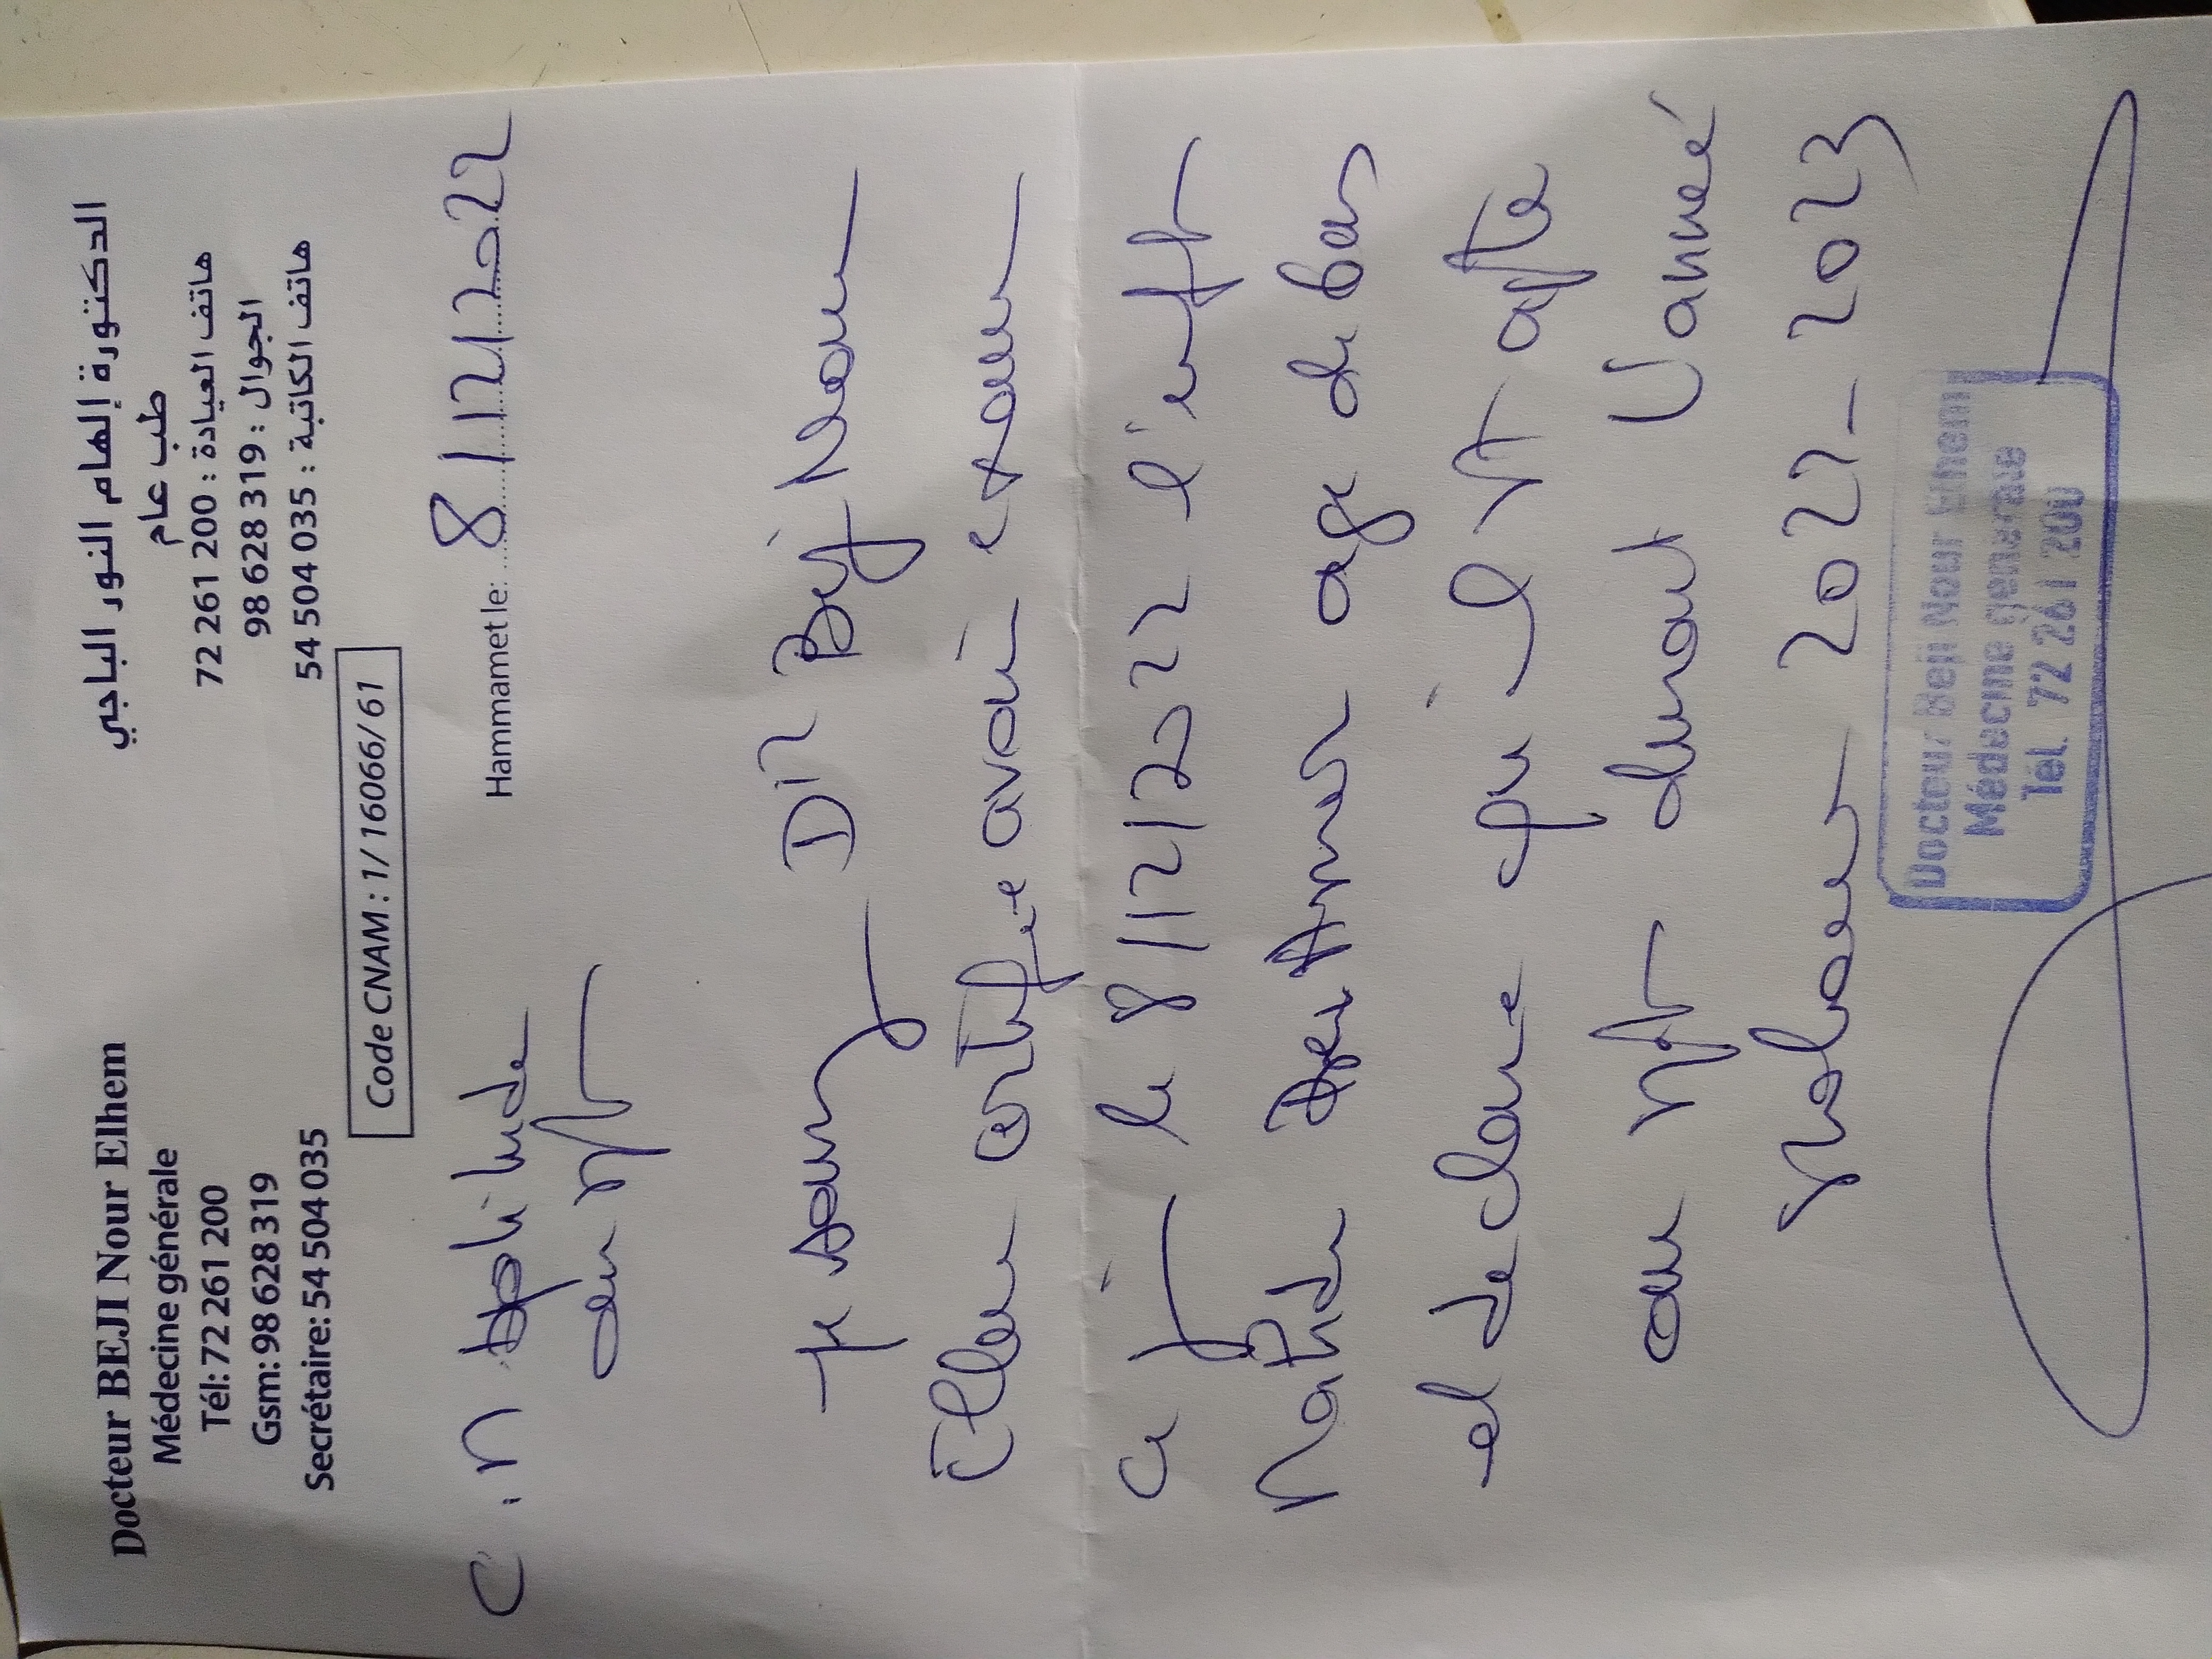 Docteur BEJI Nour Elhem
Médecine générale
Tél: 72 261 200
Gsm: 98 628 319
Secrétaire: 54 504 035
الدكتورة إلهام النور الباجي
طب عام
هاتف العيادة : 200 261 72
الجوال : 319 628 98
هاتف الكاتبة : 035 504 54
Code CNAM : 1/ 16066/ 61
Hammamet le: 8/12/2022
C.M aptitude
au
Je Dr Beji Nour
Elhem certifie avoir examin
ce j le 8/12/2022 l'enft
age de 6 ans
et declare qu'il est apte
au durant l'année
scolaire 2022-2023
Docteur Beji Nour Elhem
Médecine Générale
Tél. 72 261 200